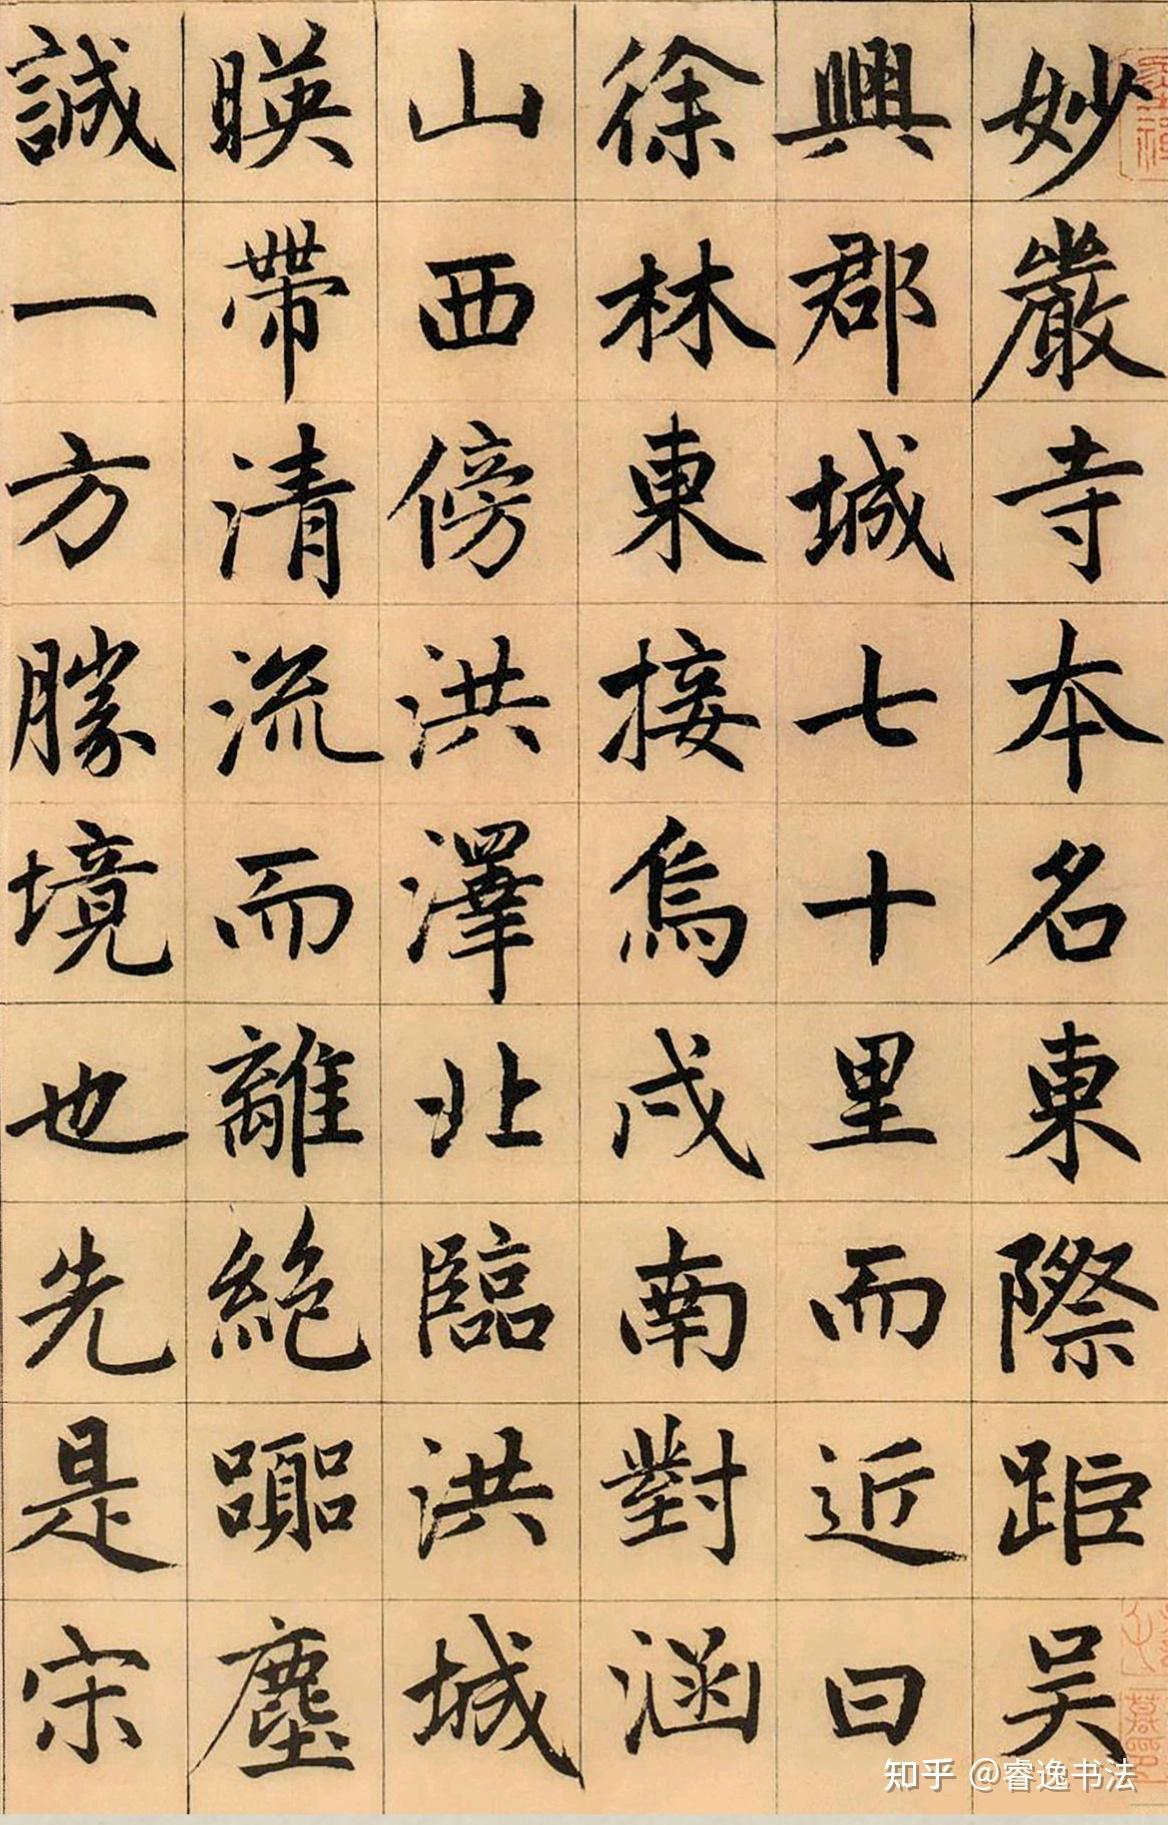 妙嚴寺本名東際距吳
興郡城七十里而近曰
徐林東接烏戍南對涵
山西傍洪澤北臨洪城
暎帶清流而離絶嚻塵
誠一方勝境也先是宋
知乎 @睿逸书法